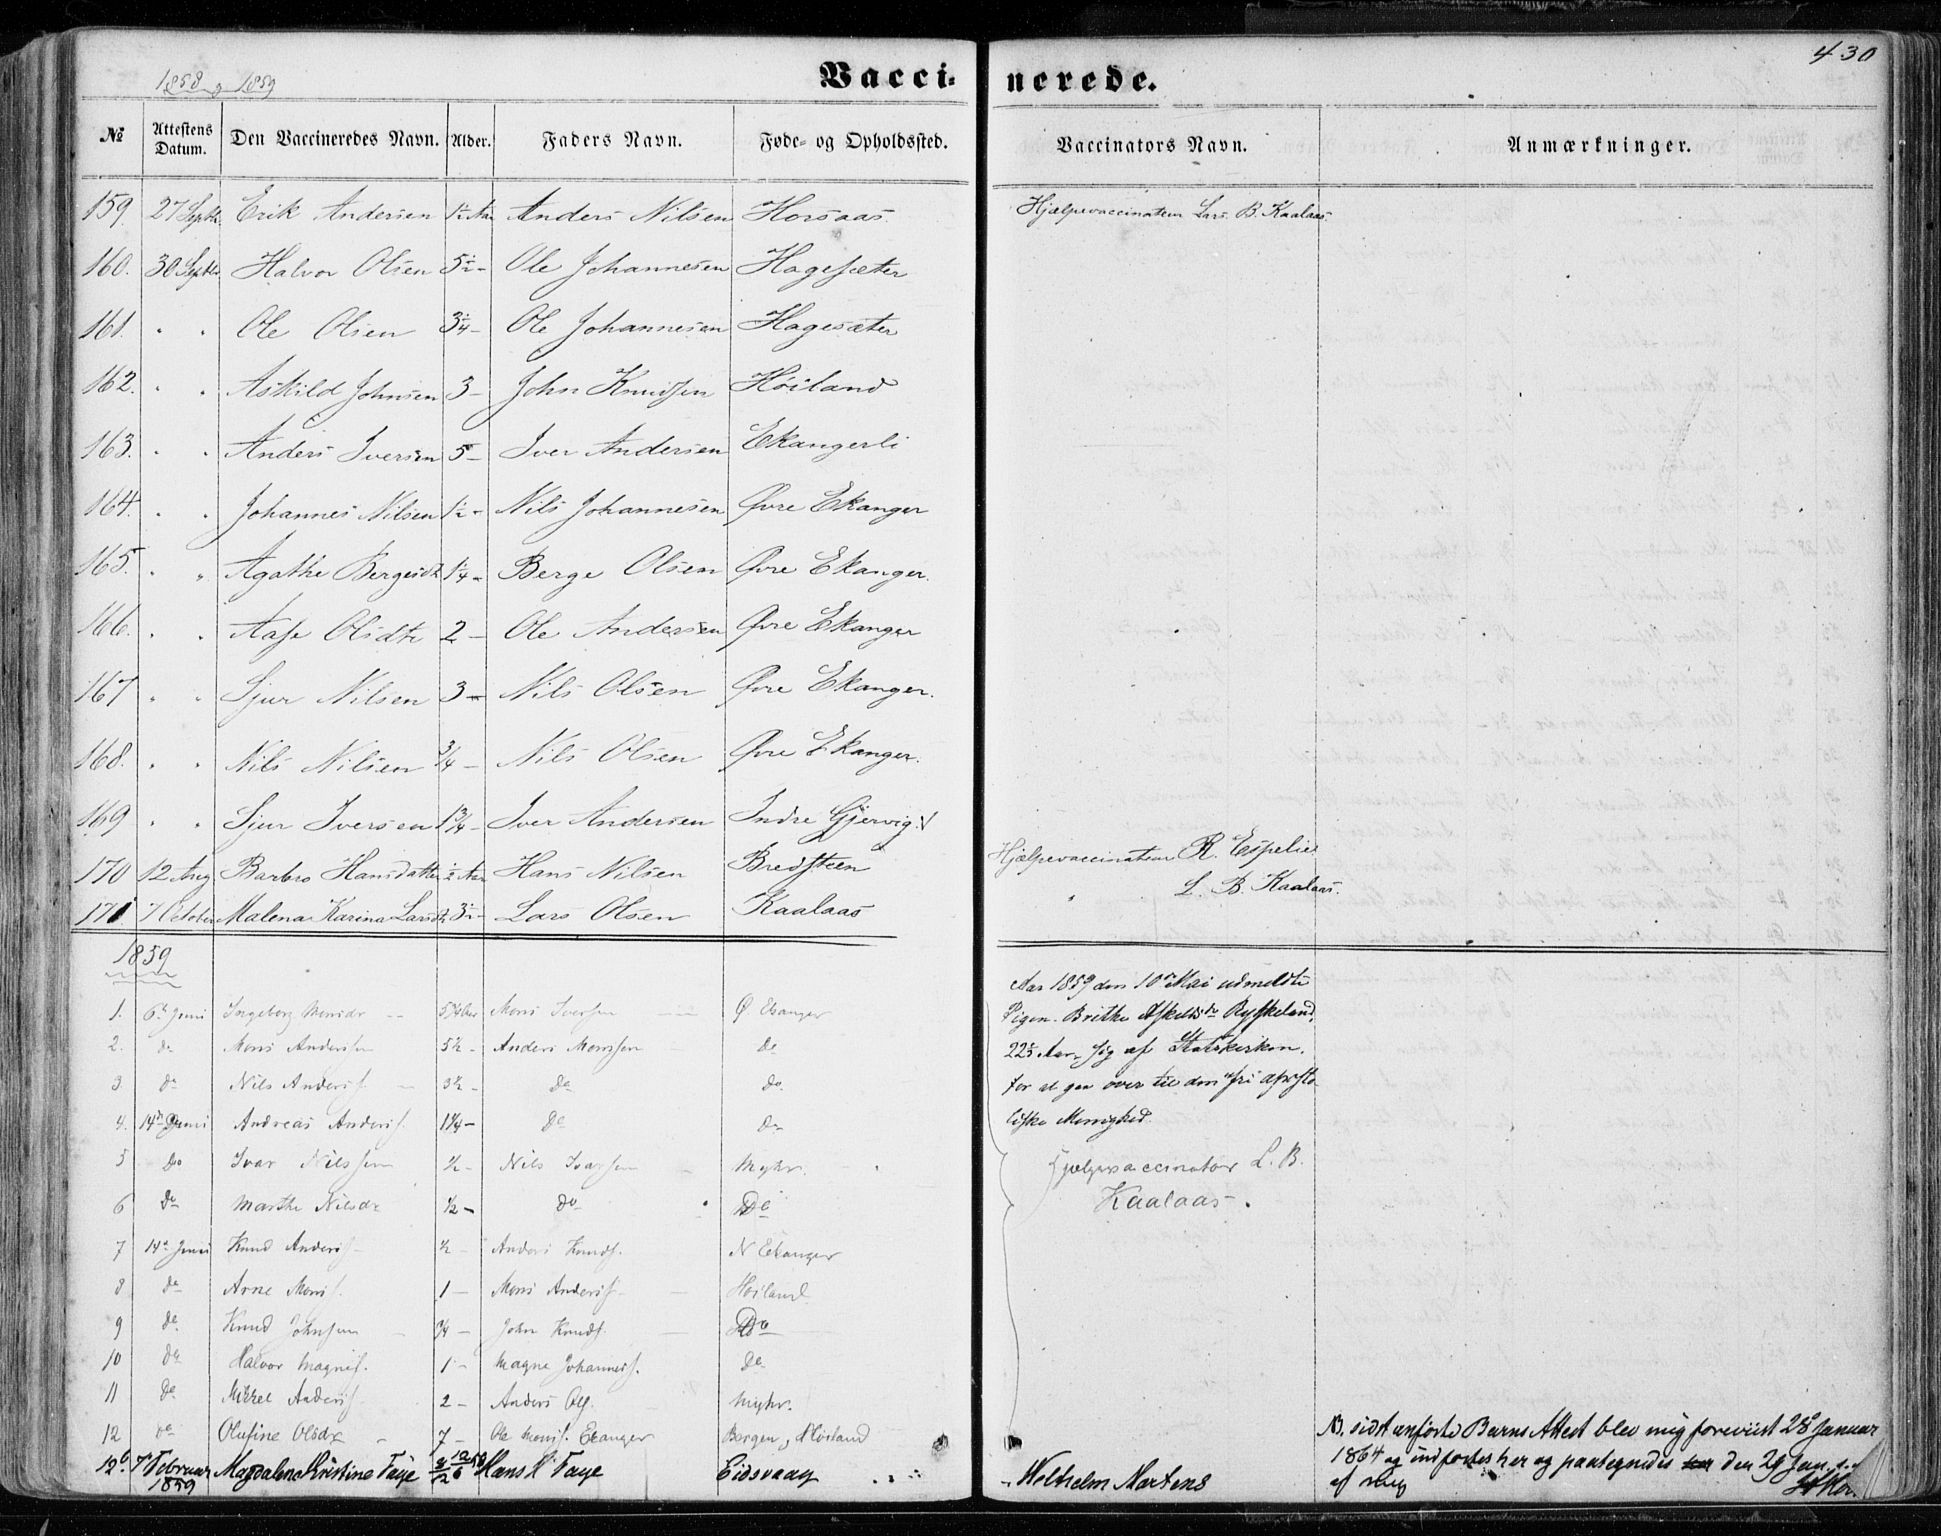 430
1858 og 1859
Vaccinerede.
№ Attestens Datum. Den Vaccineredes Navn. Alder. Faders Navn. Føde- og Opholdssted. Vaccinators Navn. Anmærkninger.
159. 27 Septbr Erik Andersen 1½ Aar Anders Nilsen Horsaas Hjælpevaccinateur Lars B. Kaalaas
160. 30 Septbr Halvor Olsen 5½ - Ole Johannesen Hagesæter
161. " " Ole Olsen 3¼ - Ole Johannesen Hagesæter
162. " " Askild Johnsen 3 - John Knudsen Höiland
163. " " Anders Iversen 5 - Iver Andersen Ekangerli
164. " " Johannes Nilsen 1½ - Nils Johannesen Øvre Ekanger
165. " " Agathe Bergesdt 1¼ - Berge Olsen Øvre Ekanger.
166. " " Aase Olsdtr 2 - Ole Andersen Øvre Ekanger
167 " " Sjur Nilsen 3 - Nils Olsen Øvre Ekanger.
168. " " Nils Nilsen ¾ - Nils Olsen Øvre Ekanger.
169 " " Sjur Iversen 1¾ - Iver Andersen Indre Gjervig
170 12 Aug Barbro Hansdatter ½ Aar Hans Nilsen Bredsteen Hjælpevaccinateur R. Espelie
171 7 October Malena Karina Larsdt 3½ - Lars Olsen Kaalaas " L. B. Kaalaas.
1859
1. 6te Juni Ingeborg Monsdr Mons Iversen Ø Ekanger
2. do Mons Andersen 5½ - Anders Monssen do
3. do Nils Anders. 3½ - do do
4. 14de Juni Andreas Anders. 1¼ - do do
5 do Ivar Nilssen ½ - Nils Ivarssen Myhr.
6 do Marthe Nilsdr ½ - do do
7 14de Juni Knud Anders. ½ - Anders Knuds. N Ekanger
8 do Arne Mons. 1 - Mons Anders. Höiland
9 do Knud Johnsen ¾ - John Knuds. do
10 do Halvor Magnes. 1 - Magne Johanness. do
11 do Mikkel Anders. 2 - Anders Ols. Myhr.
12 do Olufine Olsdr 7 - Ole Mons. Ekanger Bergen, Höiland
12b 7 Februar 1859 Magdalena Kristine Faye Hans Faye Eidsvaag Wilhelm Martens
Aar 1859 den 10de Mai udmeldte
Pigen Brithe Askeldsdr Ryskeland,
22½ Aar, sig af Statskirken,
for at gaa over til den "fri aposto-
liske Menighed.
Hjælpevaccinatör L. B.
Kaalaas.
NB. sidst anførte Barns Attest blev mig foreviist 28de Januar
1864 og indførtes her og paategnedes den 29 Jan. s.A.
af mig